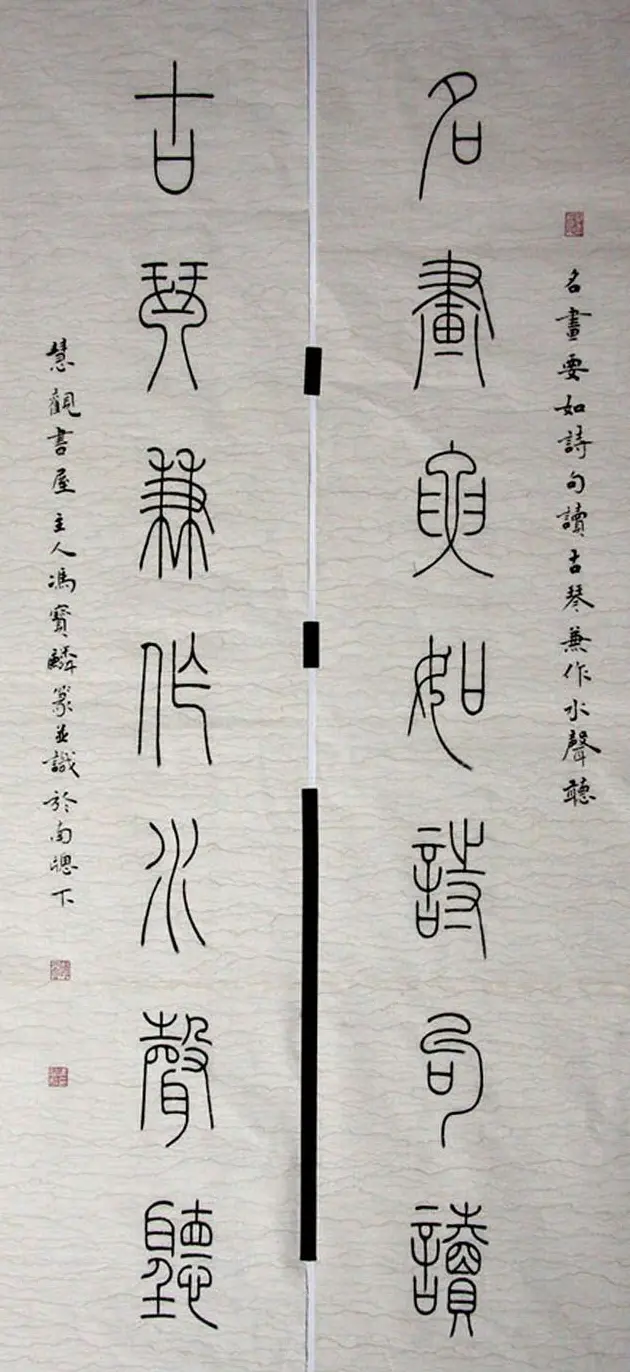 名畫要如詩句讀古琴兼作水聲聽
名畫要如詩句讀
古琴兼作水聲聽
慧觀書屋主人馮寶麟篆並識於南窗下